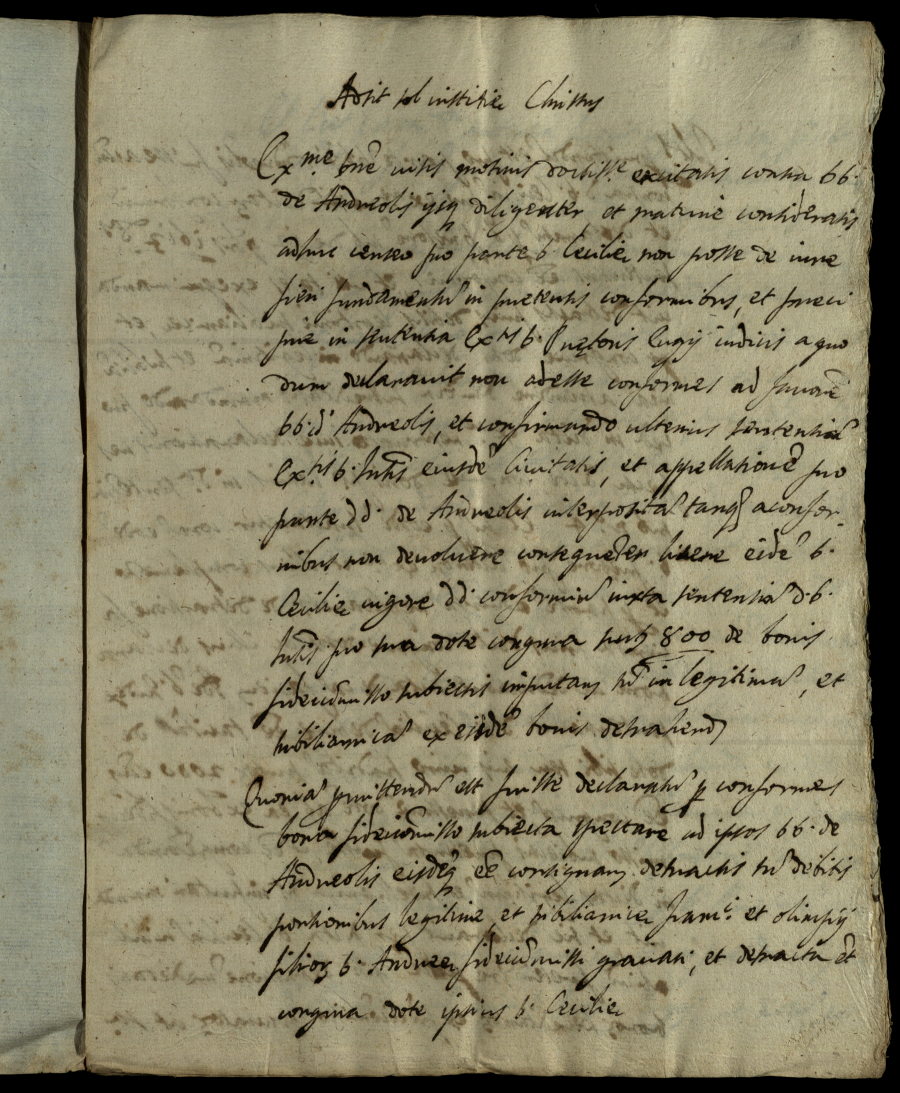 Adsit sol iustitie Christus
Ex.me d.ne visis motivis doctiss.e excitatis contra dd.
de Andreolis ijsq; diligenter et mature consideratis
adhuc censeo pro parte d. Cecilie non posse de iure
fieri fundamentũ in pretensis conformibus, et preci
pue in sententia Ex.mi d. Pretoris Lugij iudicis a quo
dum declaravit non adesse conformes ad favorẽ
dd. d' Andreolis, et confirmando ulterius sententiã
Ex.mi d. eiusdẽ Civitatis, et appellationẽ pro
parte dd. de Andreolis interpositã tanq̃ a confor-
mibus non devolvere consequẽter licere eidẽ d.
Cecilie vigore dd. conformiũ iuxta sententiã d. d.
pro sua dote congrua 800 de bonis
fideicõmisso subiectis imputans tñ in legitimã, et
tribilianicã ex eisdẽ bonis detrahend
Quoniã p̱mittendũ est fuisse declaratũ p̱ conformes
bona fideicõmisso subiecta spectare ad ipsos dd. de
Andreolis eisdẽq; eẽ consignan detractis tñ debitis
portionibus legitime, et tribilianice Franc.i et olimpij
filior̃ d. Andree fideicõmissi gravati, et detracta ẽt
congrua dote ipsius d. Cecilie